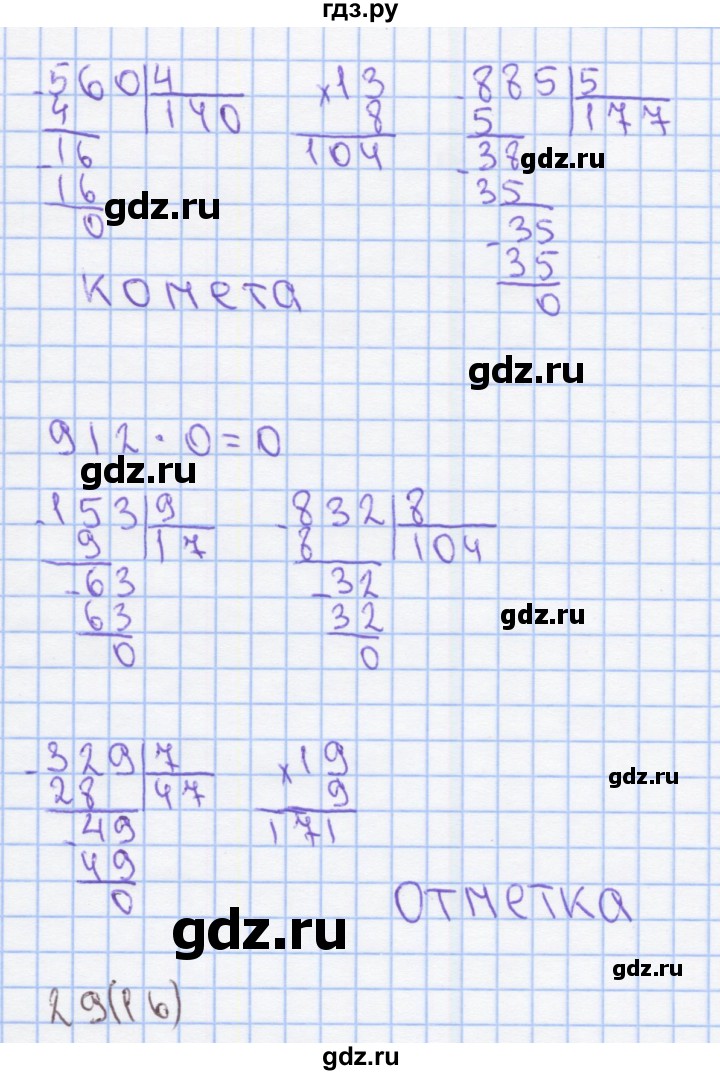 гдз.ру
560 4 × 13 885 5
4 140 8 5 177
16 104 38 gdz.ru
16 gdz.ru 35
0 35
35
комета 0
gdz.ru
912 · 0 = 0
gdz.ru
153 9 832 8
9 17 8 104
63 32
63 32 gdz.ru
0 0
329 7 × 19
28 47 9 gdz.ru
49 171
49
0 отметка
gdz.ru
gdz.ru
29 (1 б)
gdz.ru